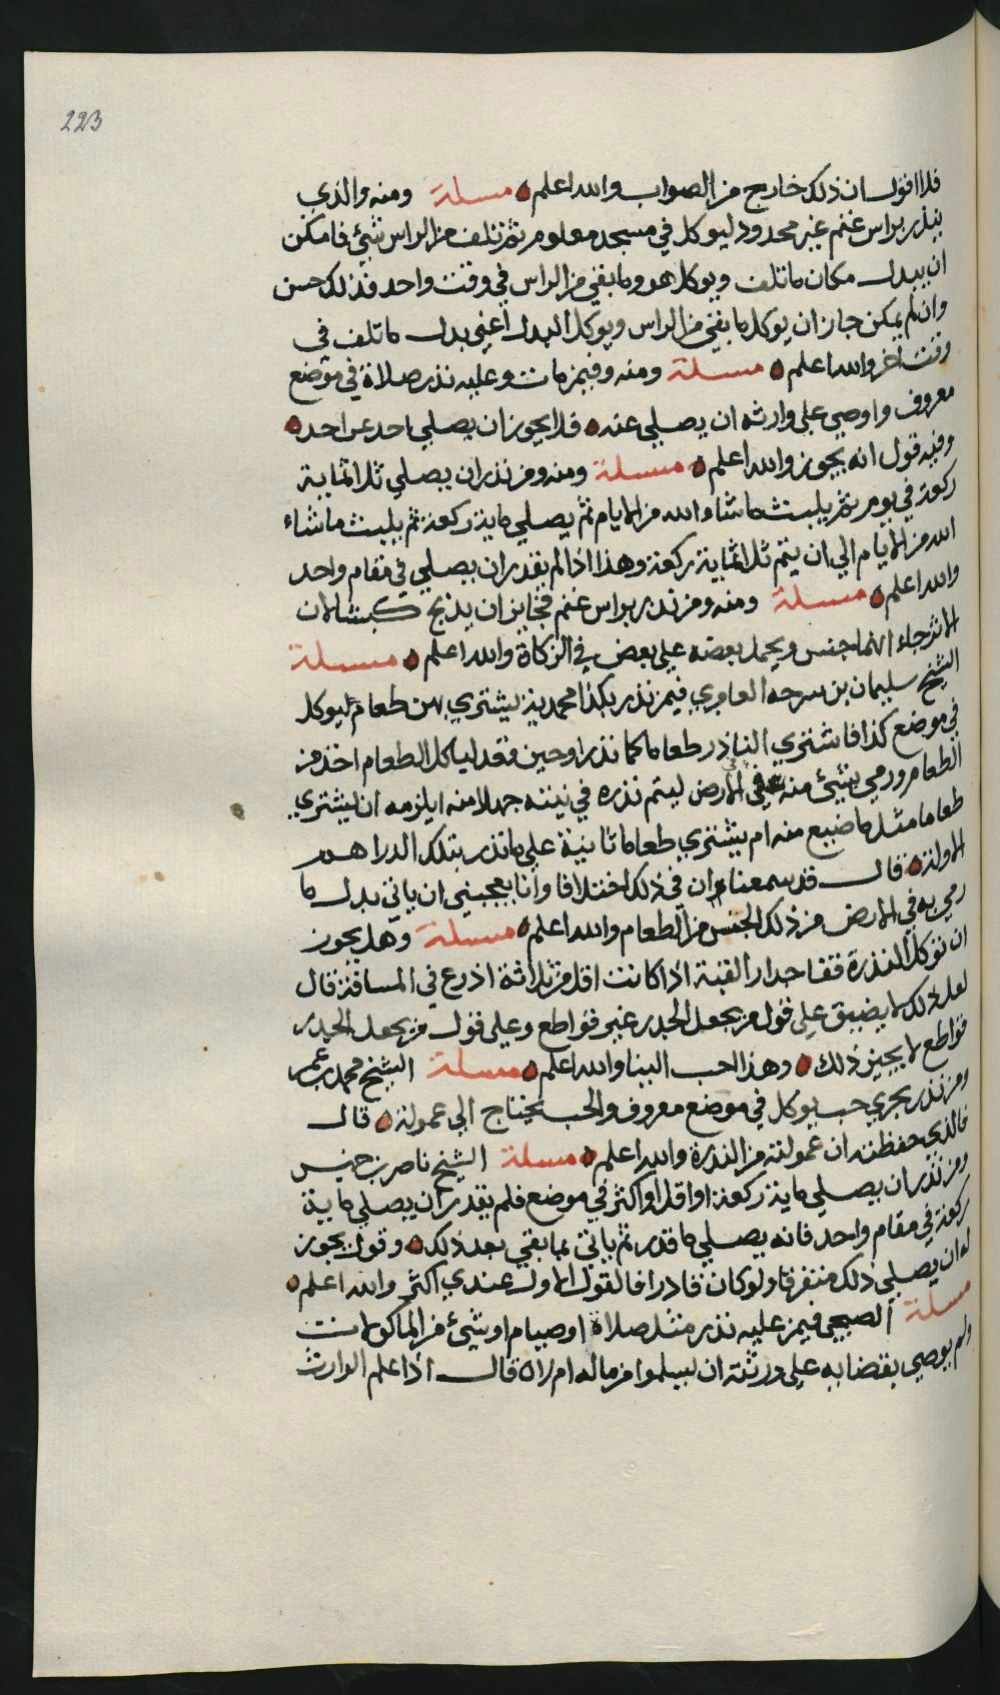 223
فلا اقول ان ذلك خارج من الصواب والله اعلم ه مسلة ومنه والذي
ينذر براس غنم غير محدود ليوكل في مسجد معلوم ثم تلف من الراس شيء فامكن
ان يبدل مكان ما تلف ويوكل هو وما بقي من الراس في وقت واحد فذلك حسن
وان لم يمكن جاز ان يوكل ما بقي من الراس ويوكل البدل اعني بدل ما تلف في
وقت اخر والله اعلم ه مسلة ومنه وفيمن مات وعليه نذر صلاة في موضع
معروف واوصي علي وارثه ان يصلي عنه ه فلا يجوز ان يصلي احد عن احد ه
وفيه قول انه يجوز والله اعلم ه مسلة ومنه ومن نذر ان يصلي ثلاثماية
ركعة في يوم ثم يلبث ما شاء الله من الايام ثم يصلي ماية ركعة ثم يلبث ما شاء
الله من الايام الي ان يتم ثلاثماية ركعة وهذا اذا لم يقدر ان يصلي في مقام واحد
والله اعلم ه مسلة ومنه ومن نذر براس غنم فجايز ان يذبح كبشا لان
الاثر جاء انهما جنس ويحمل بعضه علي بعض في الزكاة والله اعلم ه مسلة
الشيخ سليمان بن سرحه العامري فيمن نذر بكذا محمدية يشتري بهن طعام ليوكل
في موضع كذا فاشتري الناذر طعاما كما نذر او حين قعد لياكل الطعام اخذ من
الطعام ورمي بشيء منه في الارض ليتم نذره في نيته جهلا منه ايلزمه ان يشتري
طعاما مثل ما ضيع منه ام يشتري طعاما ثانية علي ما نذر بتلك الدراهم
الاولة ه قال قد سمعنا ان في ذلك اختلافا وانا يعجبني ان ياتي بدل ما
رمي به في الارض من ذلك الجنس من الطعام والله اعلم ه مسلة وهل يجوز
ان توكل النذرة قفا جدار القبة اذا كانت اقل من ثلاثة اذرع في المسافة قال
لعل ذلك لا يضيق علي قول من يجعل الجدر غير قواطع وعلي قول من يجعل الجدر
قواطع لا يجيز ذلك ه وهذا احب الينا والله اعلم ه مسلة الشيخ محمد بن عمر
ومن نذر بجري حب يوكل في موضع معروف والحب يحتاج الي عمولة ه قال
فالذي حفظته ان عمولته من النذرة والله اعلم ه مسلة الشيخ ناصر بن خميس
ومن نذر ان يصلي ماية ركعة او اقل او اكثر في موضع فلم يقدر ان يصلي ماية
ركعة في مقام واحد فانه يصلي ما قدر ثم ياتي بما بقي بعد ذلك ه وقول يجوز
له ان يصلي ذلك متفرقا ولو كان قادرا فالقول الاول عندي اكثر والله اعلم ه
مسلة الصبحي فيمن عليه نذر مثل صلاة او صيام او شيء من الماكولات
ولم يوصي بقضايه علي ورثته ان يسلموا من ماله ام لا ه قال اذا علم الوارث